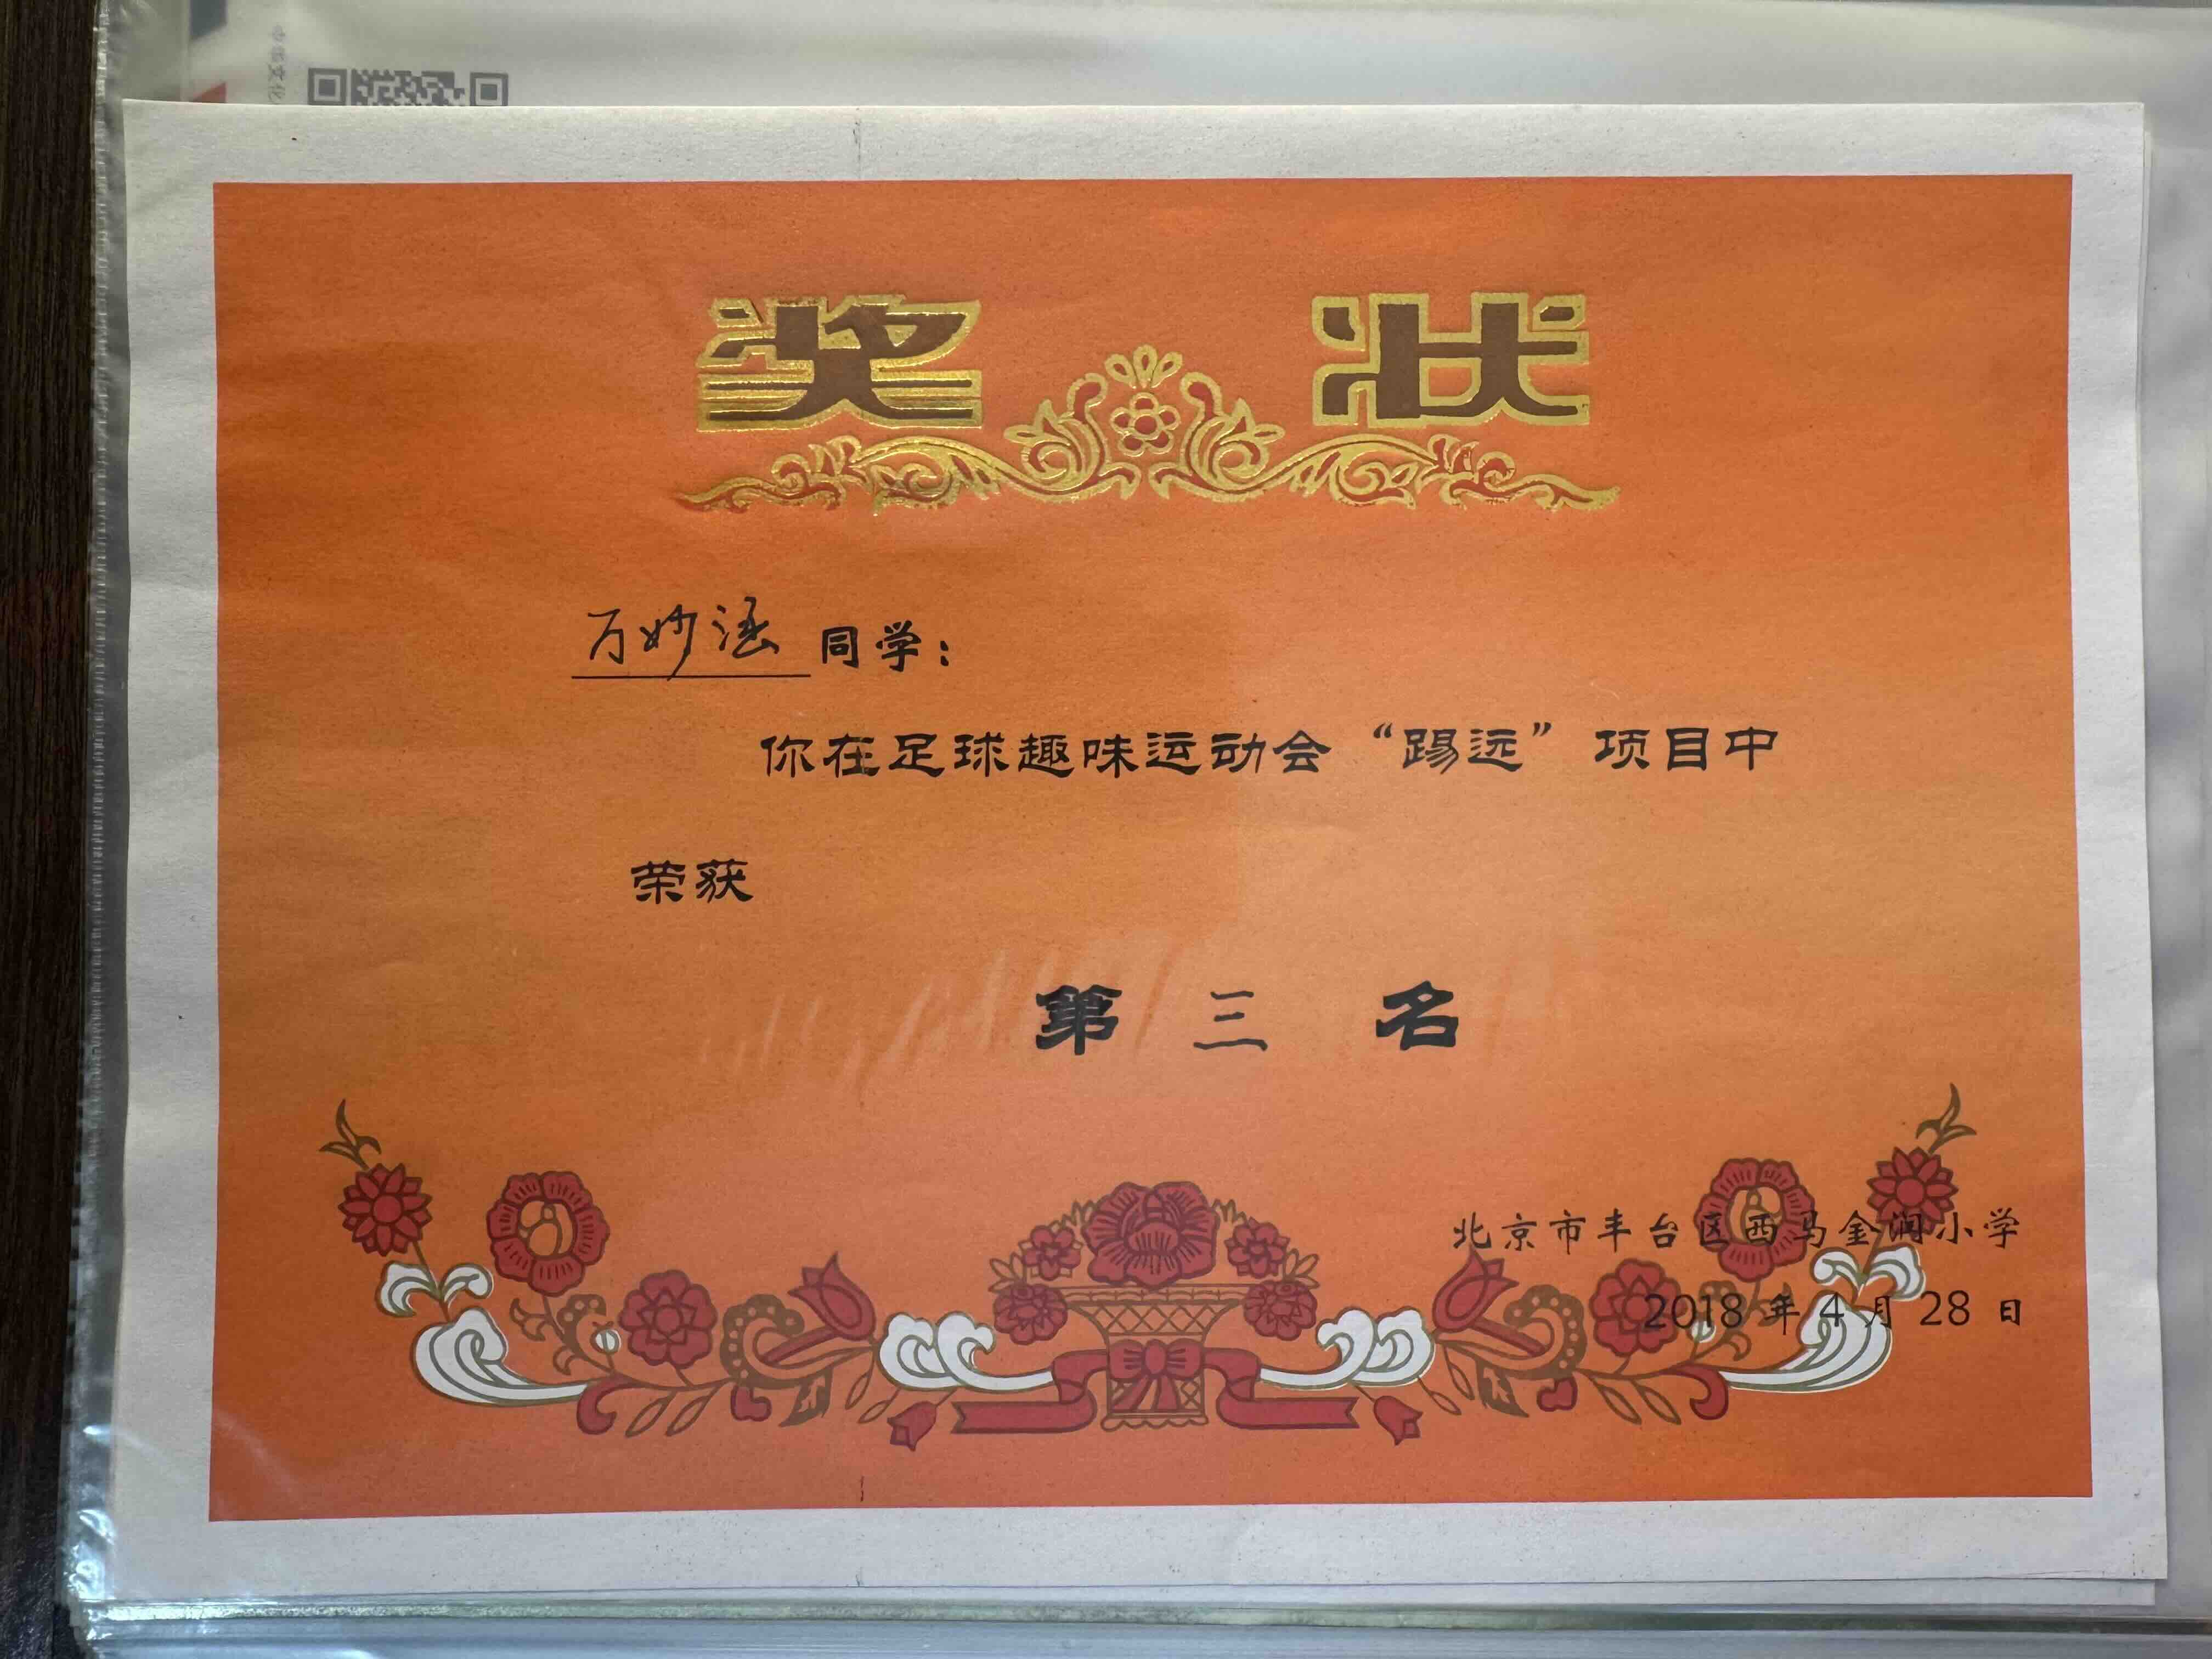 奖状
万妙涵同学：
你在足球趣味运动会“踢远”项目中
荣获
第三名
北京市丰台区西马金润小学
2018年4月28日